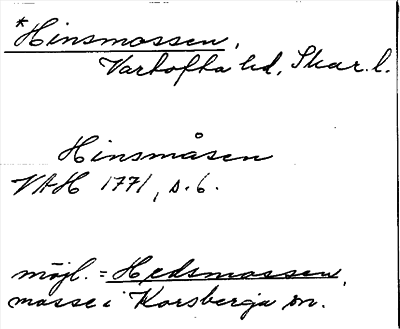 *Hinsmossen,
Vartofta hd, Skar. l.
Hinsmåsen
VAH 1771, s. 6.
möjl. = Hedsmossen,
mosse i Korsberga sn.